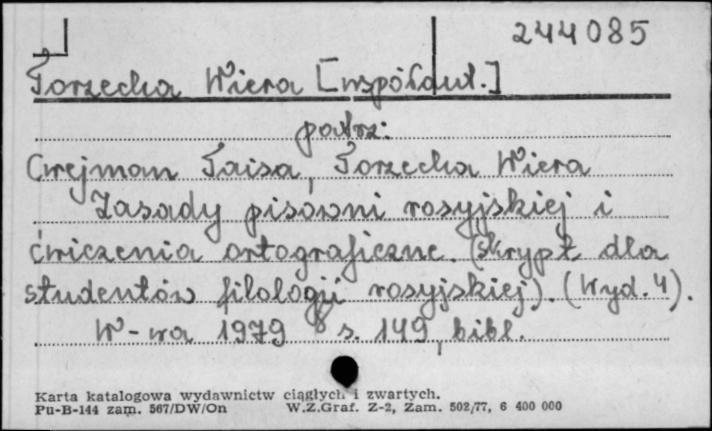 244085
Torzecka Wiera [współaut.]
patrz:
Cwejman Taisa, Torzecka Wiera
Zasady pisowni rosyjskiej i
ćwiczenia ortograficzne. (Skrypt dla
studentów filologii rosyjskiej). (Wyd. 4).
W-wa 1979 8 s. 149, bibl.
Karta katalogowa wydawnictw ciągłych i zwartych.
Pu-B-144 zam. 567/DW/On W.Z.Graf. Z-2, Zam. 502/77, 6 400 000